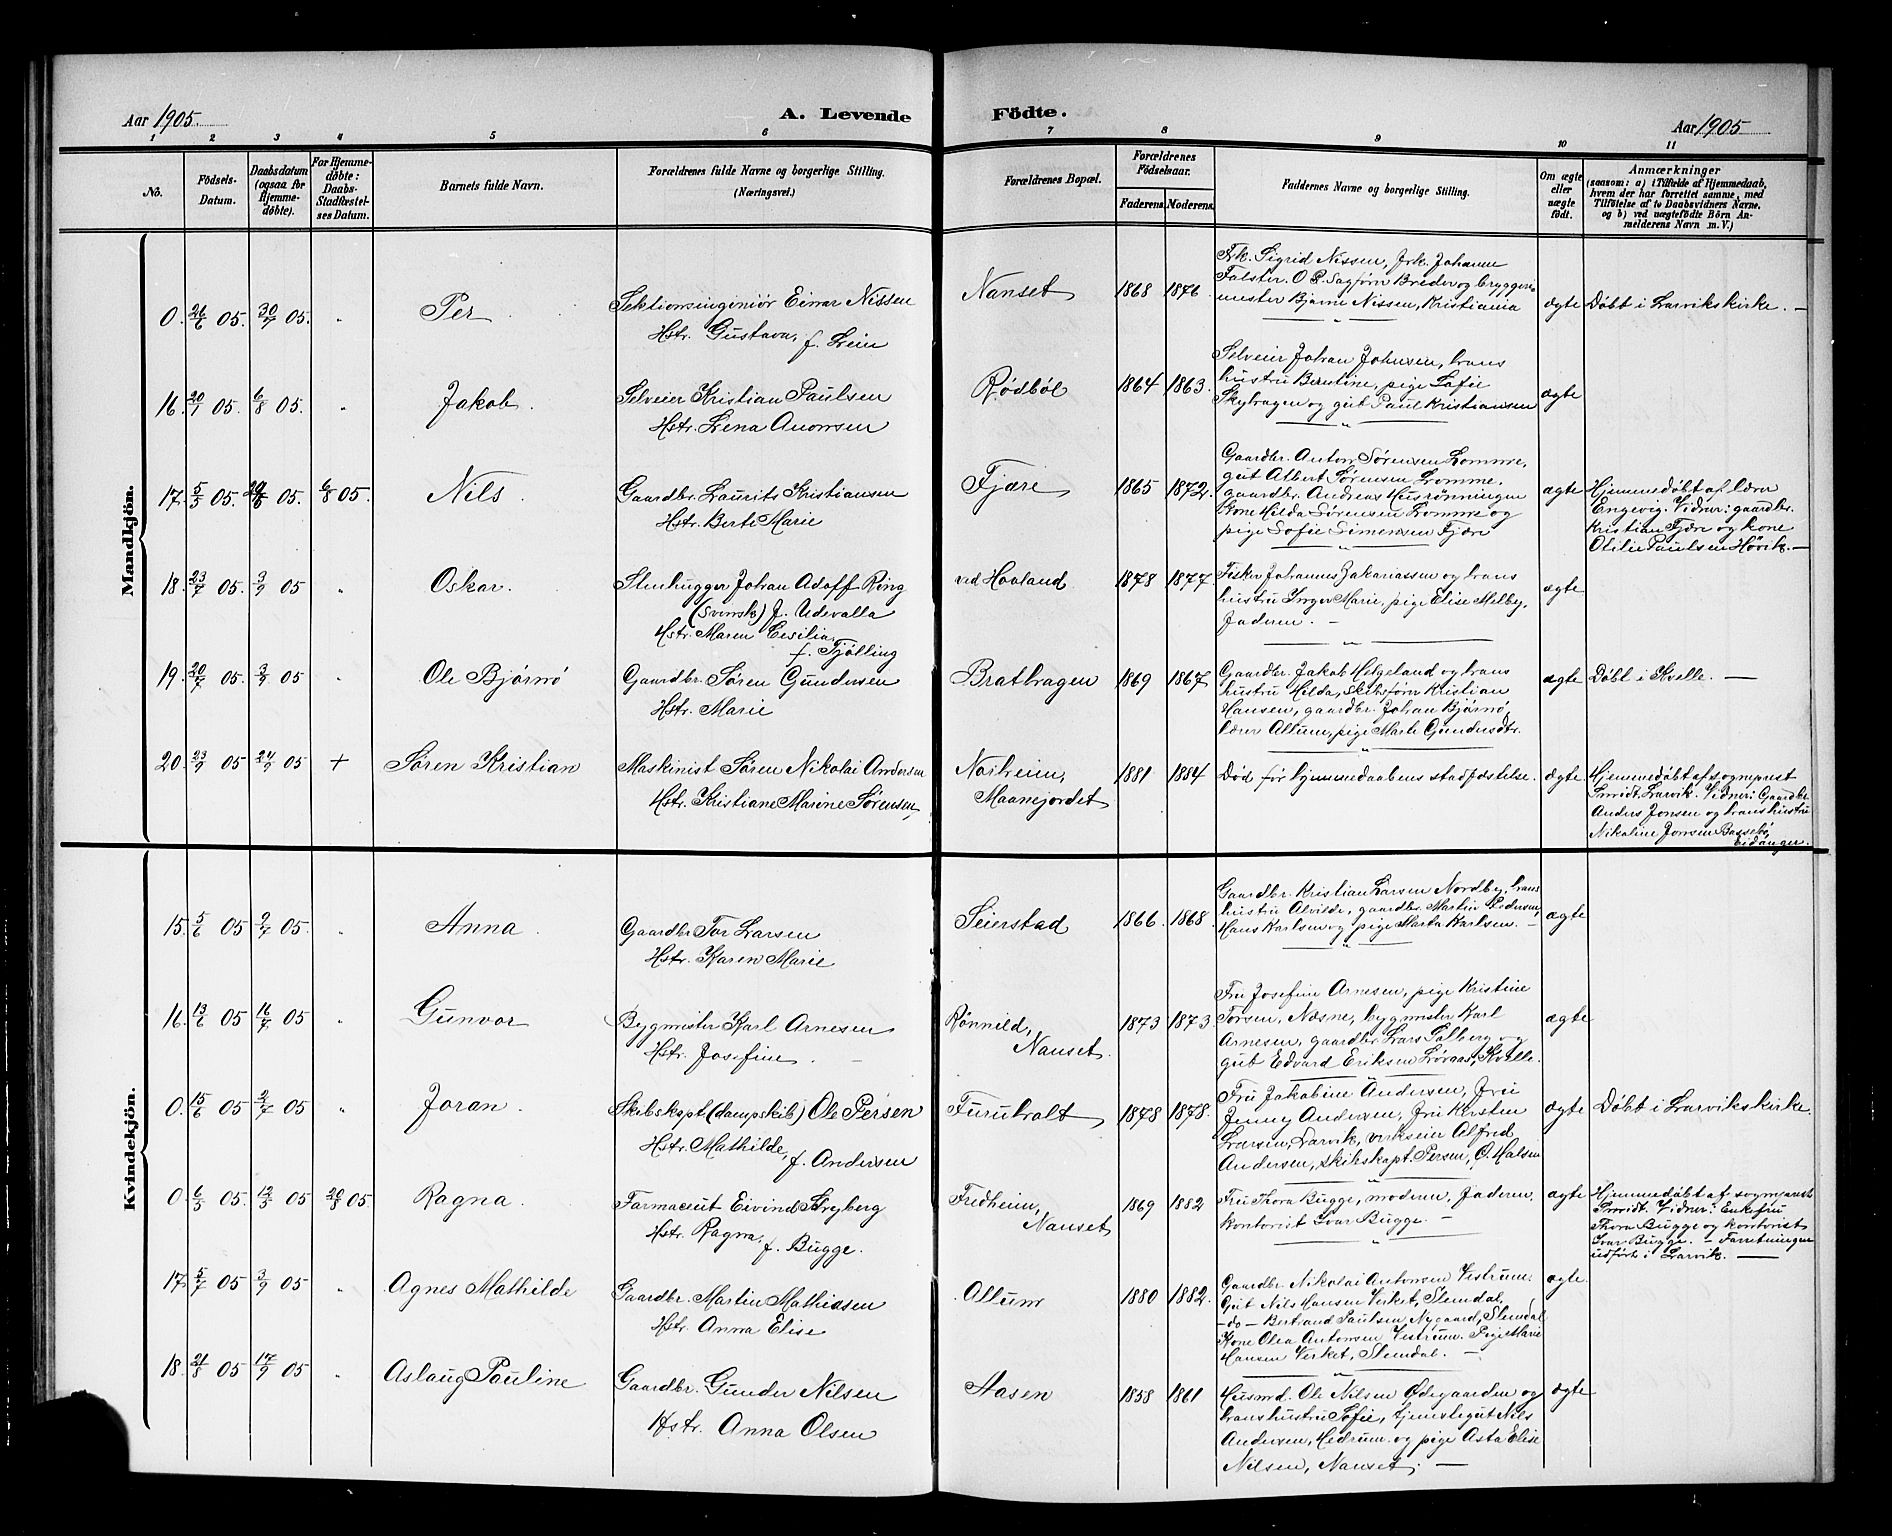 Aar 1905.
A. Levende Födte.
Aar 1905
1 2 3 4 5 6 7 8 9 10 11
No.
Födsels-
Datum.
Daabsdatum
(ogsaa for
Hjemme-
döbte).
For Hjemme-
döbte:
Daabs-
Stadfæstel-
ses Datum.
Barnets fulde Navn.
Forældrenes fulde Navne og borgerlige Stilling.
(Næringsvei.)
Forældrenes Bopæl.
Forældrenes
Födselsaar.
Faderens. Moderens.
Faddernes Navne og borgerlige Stilling.
Om ægte
eller
uægte
födt.
Anmærkninger
(saasom: a) i Tilfælde af Hjemmedaab,
hvem der har forrettet samme, med
Tilföielse af to Daabsvidners Navne,
og b) ved uægtefödte Börn An-
melderens Navn m. V.)
Mandkjön.
0. 26/6 05. 30/7 05. " Per
Sektionsingeniør Einar Nissen
Hstr. Gustava, f. Lein
Nanset
1868 1876
Frk. Sigrid Nissen, frk. Johanne
Falster. O.R. Sagfører Breder og brygge-
mester Bjarne Nissen, Kristiania
ægte
Døbt i Larvikskirke. —
16. 20/7 05. 6/8 05. " Jakob.
Selveier Kristian Paulsen
Hstr. Lena
Rødbøl
1864 1863.
Selveier Johan Johnsen, hans
hustru Berntine, pige Sofie
og gut Paul Kristiansen
ægte
17. 5/3 05. 05. 6/8 05. Nils.
Gaardbr. Laurits Kristiansen
Hstr. Berte Marie
Fjære
1865 1872.
Gaardbr. Anton Sørensen Lomme,
gut Albert Sørensen Lomme,
gaardbr. Andreas Husrønningen
kone Hilda Sørensen Lomme og
pige Sofie Simensen Fjære
ægte
Hjemmedøbt af lærer
Engevig. Vidner: gaardbr.
Kristian Fjære og kone
Otilie Paulsen Høvik. —
18. 23/7 05. 3/9 05 " Oskar.
Stenhugger Johan Adolf Ring
(svensk) f. Udevalla
Hstr. Maren Cesilia,
f. Tjølling
ved Haaland
1878 1877
Fisker Johannes Zakariassen og hans
hustru Inger Marie, pige Elise Melby,
Faderen. —
ægte
19. 20/7 05. 3/9 05 " Ole Bjørnø
Gaardbr. Søren Gundersen
Hstr. Marie
Brathagen
1869 1867
Gaardbr. Jakob Helgeland og hans
hustru Hilda, skibsfører Kristian
Hansen, gaardbr. Johan Bjørnø,
lærer Allum, pige Marte Gundersdtr.
ægte
Døbt i Kvelle. —
20. 23/9 05 24/9 05 + Søren Kristian
Maskinist Søren Nikolai Andersen
Hstr. Kristiane Marine Sørensen,
Norheim,
Maanejordet
1881 1884
Død før hjemmedaabens stadfæstelse.
ægte.
Hjemmedøbt af sogneprest
Smidt. Larvik. Vidner: Gaardbr
Anders Jonsen og hans hustru
Nikoline Jonsen Bassebø,
Eidanger.
Kvindekjön.
15. 5/6 05 2/7 05. " Anna.
Gaardbr. Tor Larsen
Hstr. Karen Marie
Seierstad
1866. 1868.
Gaardbr. Kristian Larsen Nordby, hans
hustru Alvilde, gaardbr. Martin Pedersen,
Hans Karlsen og pige Marta Karlsen. —
ægte
16. 13/6 05 16/7 05 " Gunvor
Bygmester Karl Arnesen
Hstr. Josefine. —
Rønnild,
Nanset.
1873 1873
Fru Josefine Arnesen, pige Kristine
Torsen, Næsne, bygmester Karl
Arnesen, gaardbr. Lars Solberg og
gut Edvard Eriksen Løvaas, Kvelle.
ægte
0. 15/6 05 2/7 05 " Joran.
Skibskapt (dampskib) Ole Persen
Hstr. Mathilde, f. Andersen
Furuhalt
1878 1878.
Fru Jakobine Andersen, Fru
Jenny Andersen, Fru Kirsten
Larsen, Larvik, verkseier Alfred
Andersen, skibskapt. Persen, O. Halsen
ægte
Døbt i Larvikskirke.
0. 6/3 05. 12/3 05 20/8 05. Ragna.
Farmaceut Eivind
Hstr. Ragna, f. Bugge.
Fredheim,
Nanset
1869 1882
Fru Thora Bugge, moderen, Faderen,
kontorist Ivar Bugge. —
ægte
Hjemmedøbt af sogneprest
Smidt. Vidner: Enkefru
Thora Bugge og kontorist
Ivar Bugge. — Forretningen
udført i Larvik. —
17. 5/7 05 3/9 05 " Agnes Mathilde
Gaardbr. Martin Mathisen
Hstr. Anna Elise
Allum
1880 1882.
Gaardbr. Nikolai Antonsen Vestrum.
Gut Nils Hansen Verket, Slemdal,
—do— Bertrand Paulsen Nygaard, Slemdal
Kone Olea Antonsen Vestrum. Pige Marie
Hansen Verket, Slemdal. —
ægte.
18. 21/8 05 17/9 05 " Aslaug Pauline
Gaardbr. Gunder Nilsen
Hstr. Anna Olsen
Aasen
1858 1861
Husmd. Ole Nilsen Ødegaarden og
hans hustru Sofie, tjenestegut Nils
Andersen, Hedrum. og pige Asta Elise
Nilsen, Nanset. —
ægte